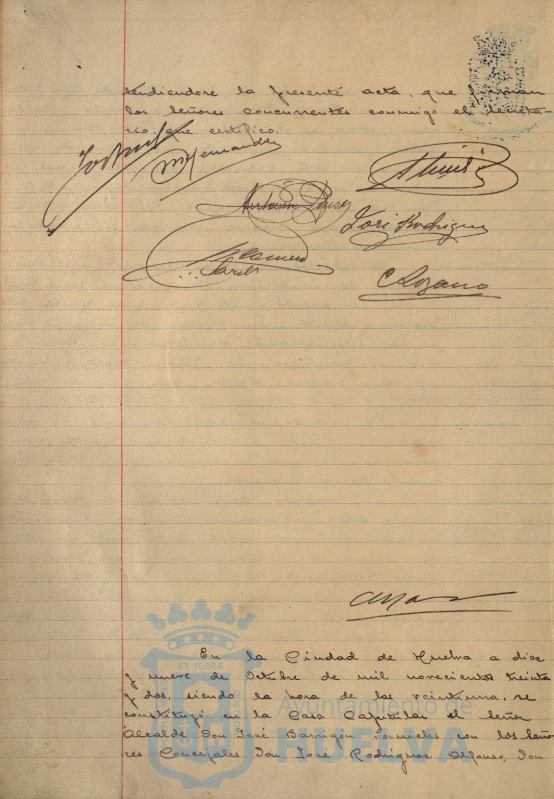 tendiendose la presente acta, que firman
los señores concurrentes conmigo el Secreta-
rio que certifico.
Hernandez
José Rodriguez
C Lozano
En la Ciudad de Huelva a diez
y nueve de Octubre de mil novecientos treinta
y dos, siendo la hora de las veintiuna, se
constituyó en la Casa Capitular el Señor
Alcalde Don José Barrigón Fornieles con los Seño-
res Concejales Don José Rodriguez Alfonso, Don
Ayuntamiento de
HUELVA